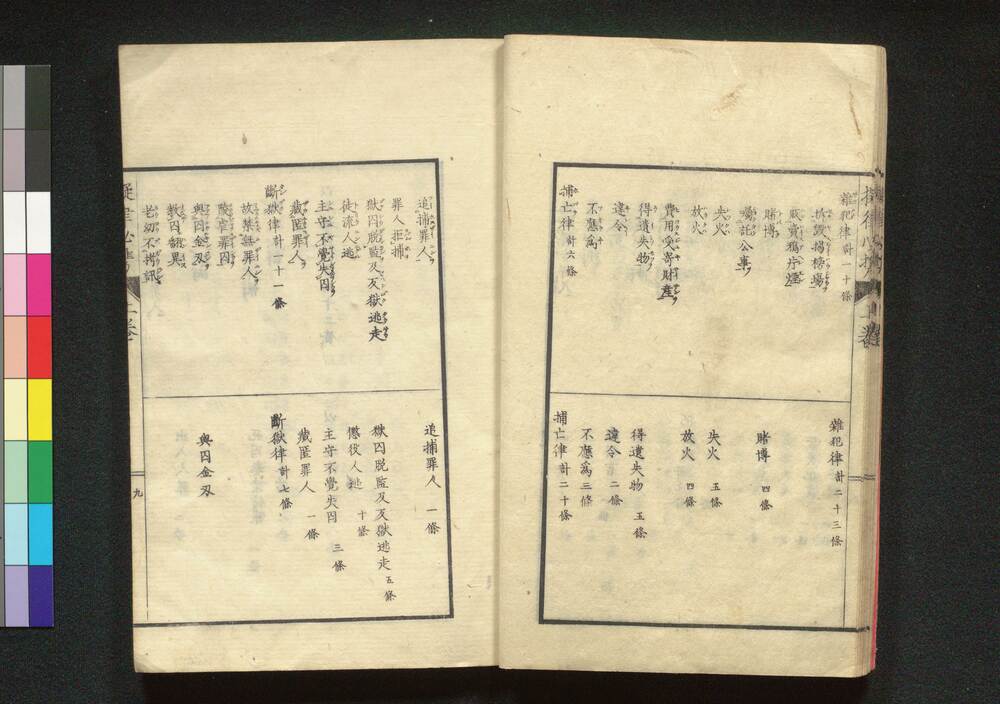 雜犯律計一十條
拆毀揭榜場
販賣鴉片煙
賭博
囑託公事
失火
放火
費用受寄財產
得遺失物
違令
不應為
捕亡律計六條
雜犯律計二十三條
賭博 四條
失火 五條
放火 四條
得遺失物 五條
違令 二條
不應為 三條
捕亡律計二十條
追捕罪人
罪人拒捕
獄囚脫監及反獄逃走
徒流人逃
主守不覺失囚
藏匿罪人
斷獄律計一十一條
故禁無罪人
陵虐罪囚
與囚金刃
教囚翻異
老幼不拷訊
追捕罪人 一條
獄囚脫監及反獄逃走 五條
懲役人逃 十條
主守不覺失囚 三條
藏匿罪人 一條
斷獄律計七條
與囚金刃
九